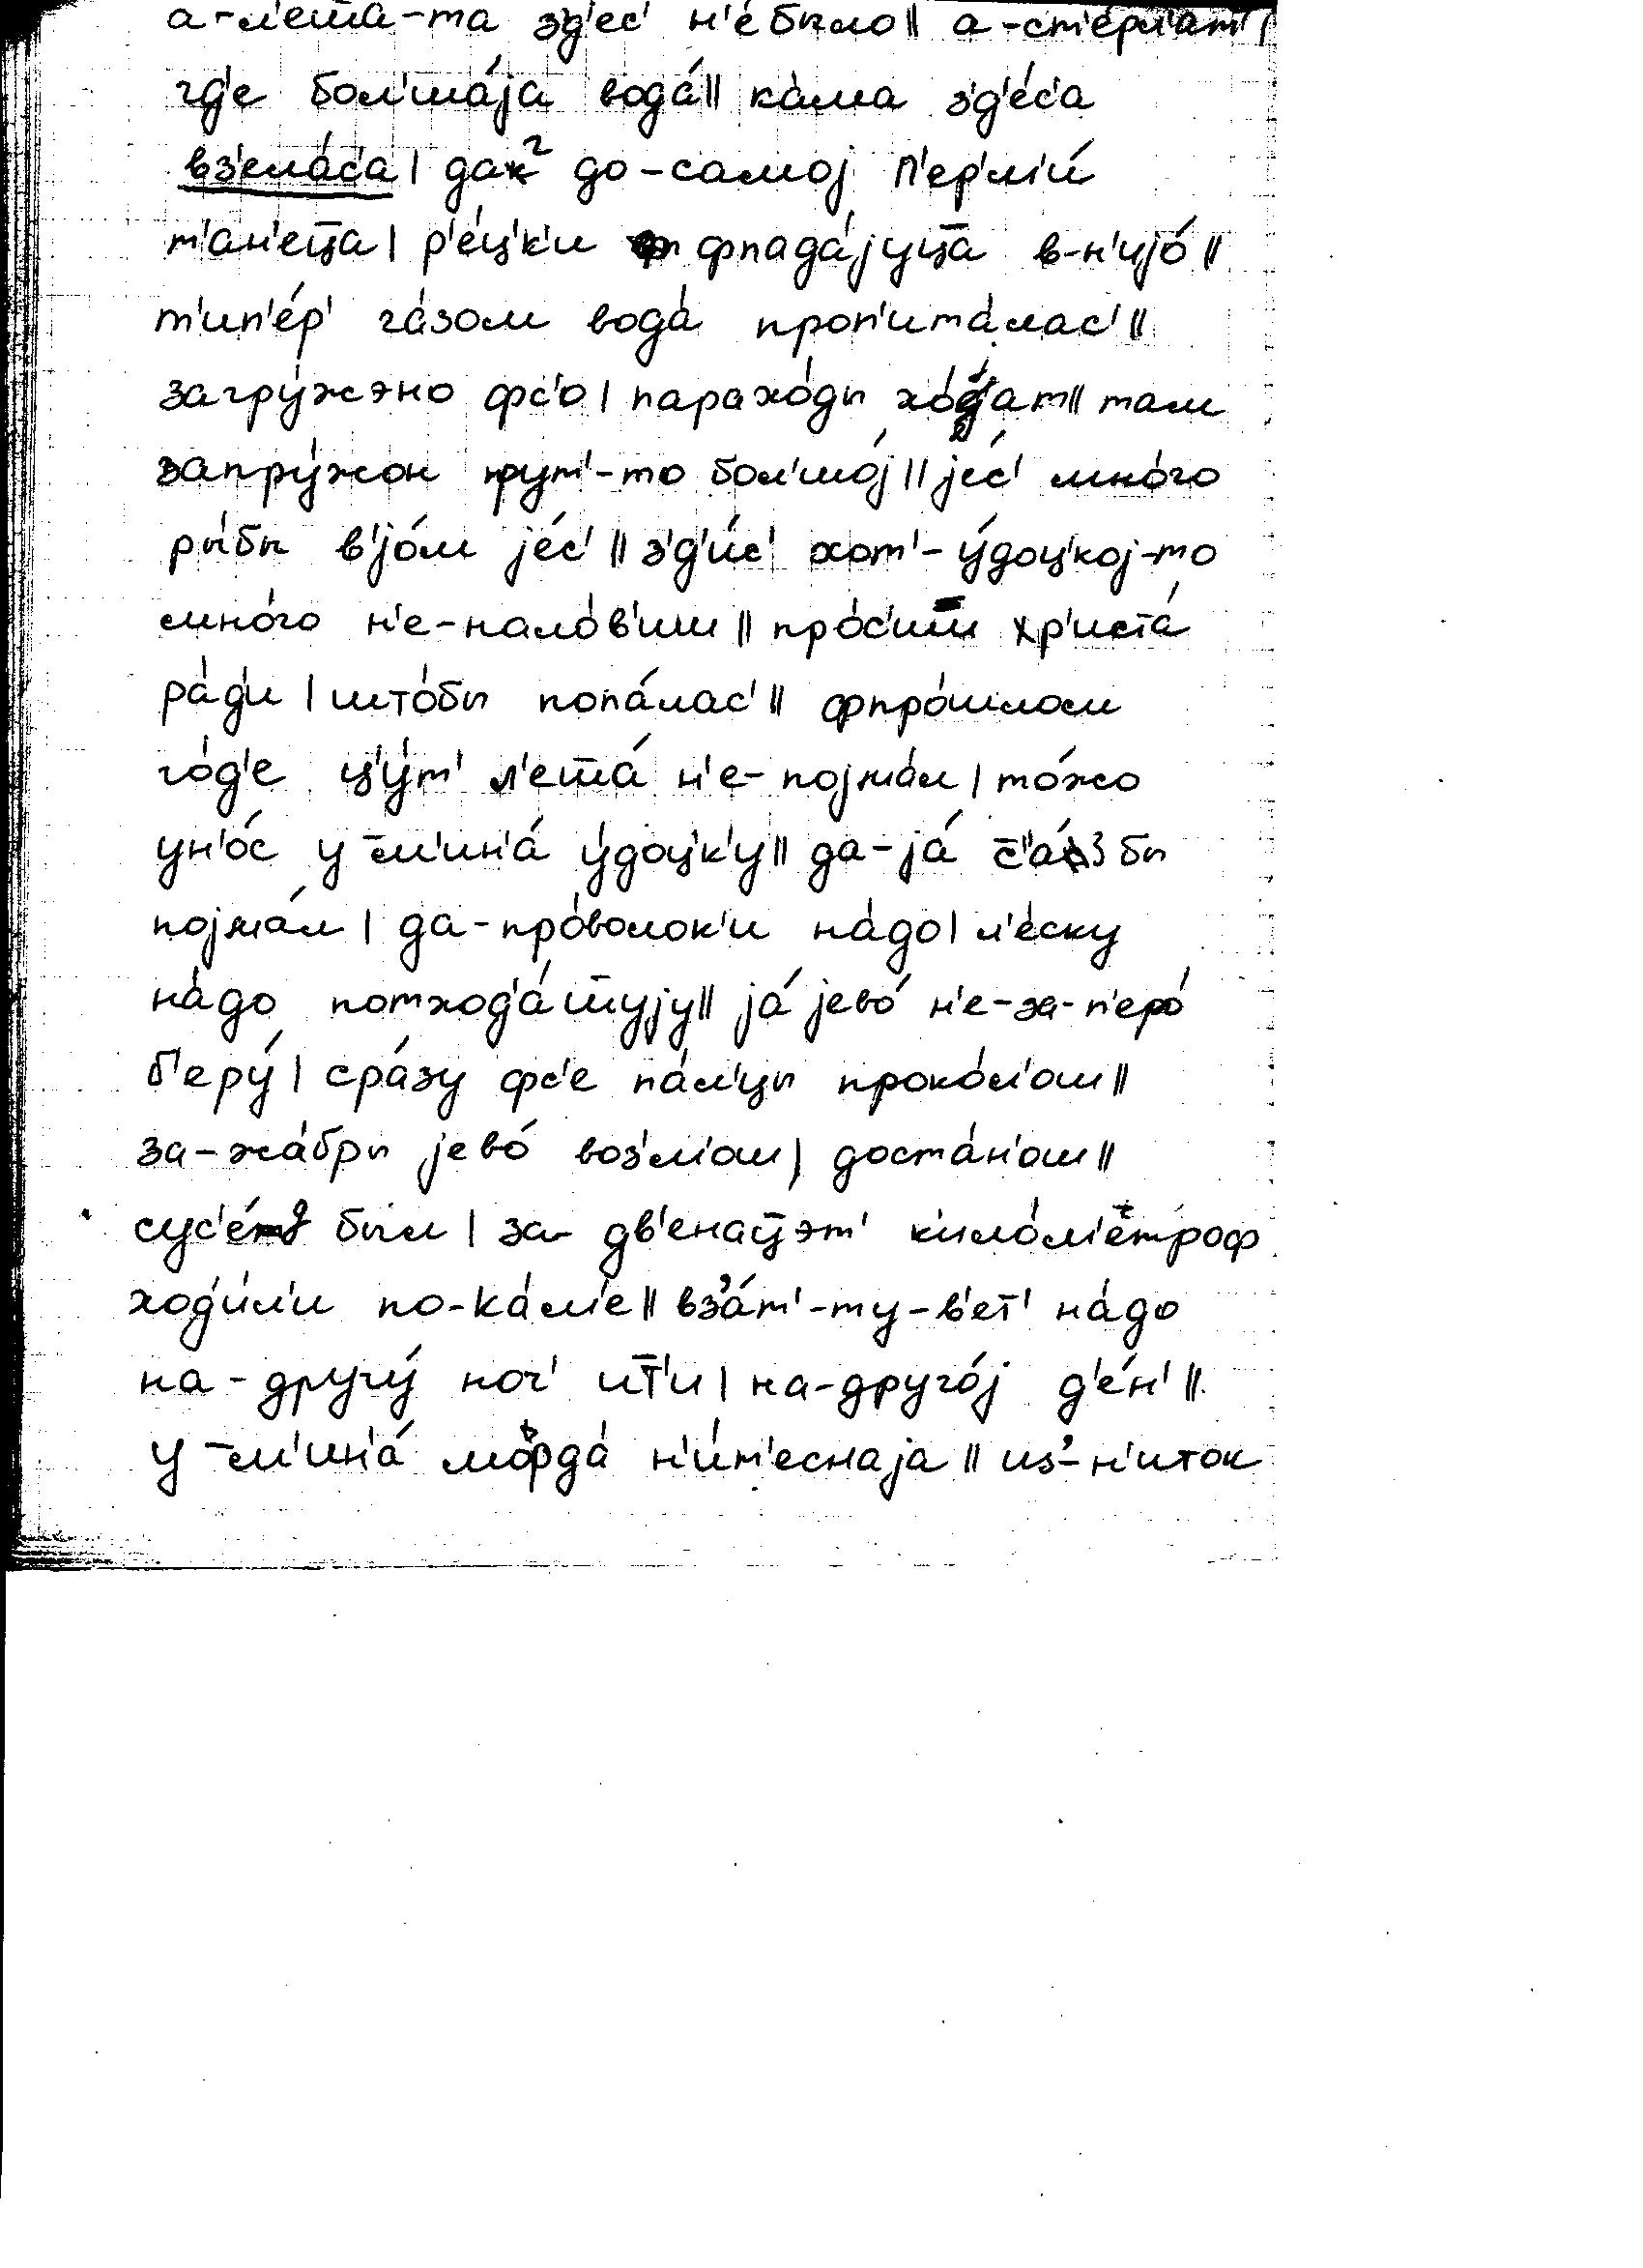 а-л'еш̄а-та з'д'ес' н'е́было || а-ст'е́рл'ат' |
гд'е бол'ша́jа вода́ || ка́ма з'д'е́с'а
вз'ела́с'а | даг до-самоj П'ер'м'и́
т'ан'ец̄а | р'е́ц'к'и фпада́jуц̄а в-н'иjо́ ||
т'ип'е́р' га́зом вода́ проп'ита́лас' ||
загру́жэно фс'о | парахо́ды хо́д'ат || там
запру́жон прут'-то бол'шо́j || jе́с' мно́го
ры́бы в'jо́м jе́с' || з'д'и́с' хот'-у́доц'коj-то
мно́го н'е-нало́в'иш || про́с'иш̄ хр'иста́
ра́д'и | што́бы попа́лас' || фпро́шлом
го́д'е ц'у́т' л'еш̄а́ н'е-поjма́л | то́жо
ун'о́с у-м'ин'а́ у́доц'к'у || да-jа́ с̄'а́з бы
поjма́л | да-про́волок'и на́до | л'е́ску
на́до потход'а́ш̄уjу || jа́ jево́ н'е-за-п'еро́
б'еру́ | сра́зу фс'е па́л'цы проко́л'ош ||
за-жа́бры jево́ воз'м'ош | доста́н'ош ||
сус'е́д был | за-дв'енац̄эт' к'ило́м'етроф
ход'и́л'и по-ка́м'е || вз'а́т'-ту-в'ет' на́до
на-другу́ ноч' ит̄'и | на-друго́j д'е́н' ||
у-м'ин'а́ мо́рда́ н'и́т'еснаjа || из'-н'иток